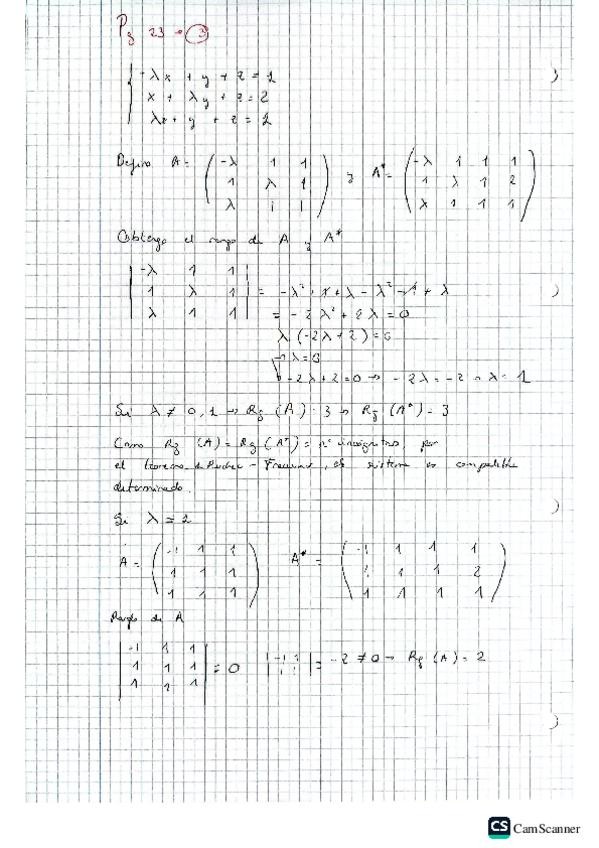 Pg 23 → 3
-λx + y + z = 1
x + λy + z = 2
λx + y + z = 1
Defino A = ( -λ 1 1 ) y A* = ( -λ 1 1 1 )
1 λ 1 1 λ 1 2
λ 1 1 λ 1 1 1
Obtengo el rango de A y A*
| -λ 1 1 |
| 1 λ 1 | = -λ² + 1 + λ - λ² - 1 + λ
| λ 1 1 | = -2λ² + 2λ = 0
λ (-2λ + 2) = 0
λ = 0
-2λ + 2 = 0 → -2λ = -2 → λ = 1
Si λ ≠ 0, 1 → Rg (A) = 3 → Rg (A*) = 3
Como Rg (A) = Rg (A*) = nº incognitas, por
el teorema de Rouché - Frobenius, el sistema es compatible
determinado.
Si λ = 1
A = ( -1 1 1 ) A* = ( -1 1 1 1 )
1 1 1 1 1 1 2
1 1 1 1 1 1 1
Rango de A
| -1 1 1 |
| 1 1 1 | = 0 | -1 1 | = -2 ≠ 0 → Rg (A) = 2
| 1 1 1 | | 1 1 |
CS CamScanner